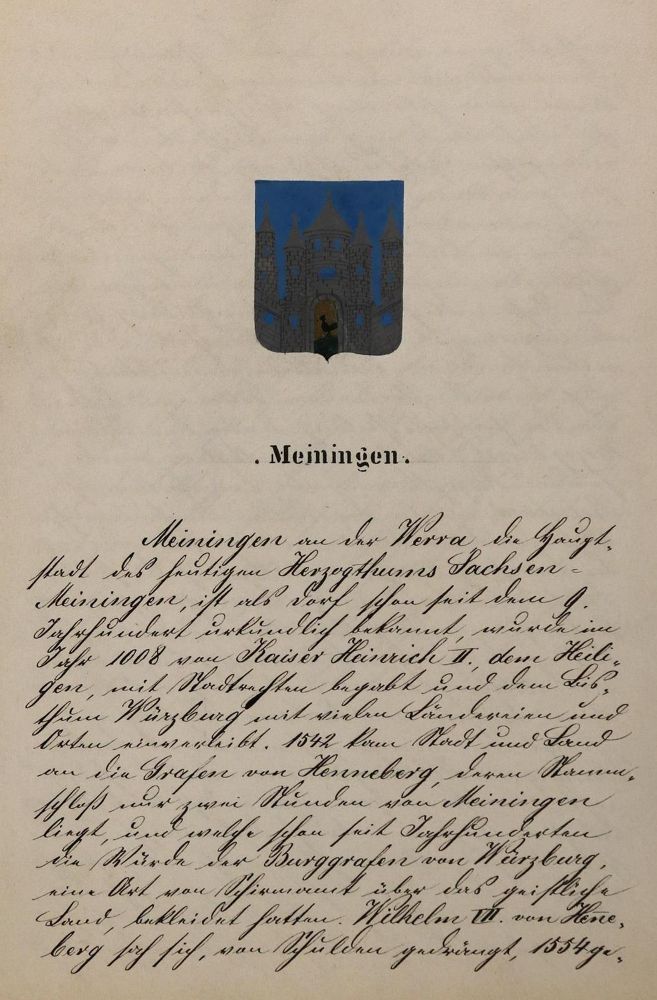 . Meiningen.
Meiningen an der Werra, die Haupt-
stadt des heutigen Herzogthums Sachsen-
Meiningen, ist als Dorf schon seit dem 9.
Jahrhundert urkundlich bekannt, wurde im
Jahr 1008 von Kaiser Heinrich II., dem Heili-
gen, mit Stadtrechten begabt und dem Bis-
thum Würzburg mit vielen Ländereien und
Orten einverleibt. 1542 kam Stadt und Land
an die Grafen von Henneberg, deren Stamm-
schloß nur zwei Stunden von Meiningen
liegt, und welche schon seit Jahrhunderten
die Würde der Burggrafen von Würzburg,
eine Art von Schirmamt über das geistliche
Land, bekleidet hatten. Wilhelm VII. von Henne-
berg sah sich, von Schulden gedrängt, 1554 ge-